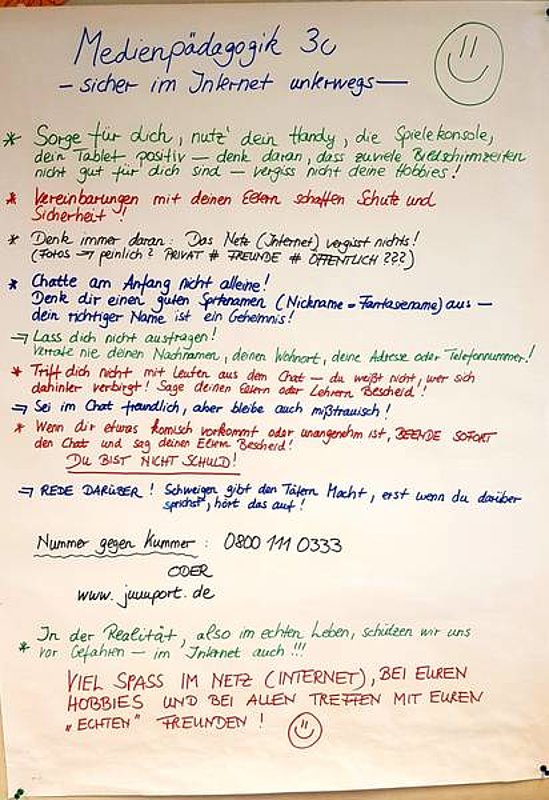 Medienpädagogik 3c
- sicher im Internet unterwegs -
* Sorge für dich, nutz' dein Handy, die Spielekonsole,
dein Tablet positiv - denk daran, dass zuviele Bildschirmzeiten
nicht gut für dich sind - vergiss nicht deine Hobbies!
* Vereinbarungen mit deinen Eltern schaffen Schutz und
Sicherheit!
* Denk immer daran: Das Netz (Internet) vergisst nichts!
(Fotos → peinlich? PRIVAT # FREUNDE # ÖFFENTLICH ???)
* Chatte am Anfang nicht alleine!
Denk dir einen guten Spitznamen (Nickname = Fantasiename) aus -
dein richtiger Name ist ein Geheimnis!
→ Lass dich nicht ausfragen!
Verrate nie deinen Nachnamen, deinen Wohnort, deine Adresse oder Telefonnummer!
* Triff dich nicht mit Leuten aus dem Chat - du weißt nicht, wer sich
dahinter verbirgt! Sage deinen Eltern oder Lehrern Bescheid!
→ Sei im Chat freundlich, aber bleibe auch mißtrauisch!
* Wenn dir etwas komisch vorkommt oder unangenehm ist, BEENDE SOFORT
den Chat und sag deinen Eltern Bescheid!
DU BIST NICHT SCHULD!
→ REDE DARÜBER! Schweigen gibt den Tätern Macht, erst wenn du darüber
sprichst, hört das auf!
Nummer gegen Kummer: 0800 111 0333
ODER
www.juuuport.de
* In der Realität, also im echten Leben, schützen wir uns
vor Gefahren - im Internet auch!!!
VIEL SPASS IM NETZ (INTERNET), BEI EUREN
HOBBIES UND BEI ALLEN TREFFEN MIT EUREN
„ECHTEN" FREUNDEN!